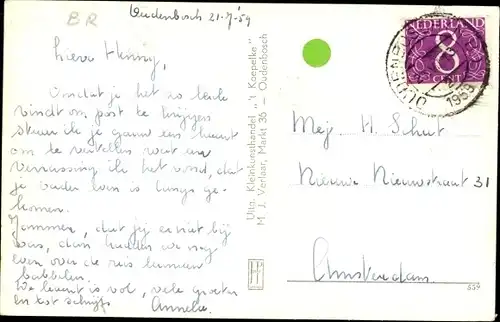 BR
Oudenbosch 21-7-'59
Lieve Henny,
Omdat je het zo leuk
vindt om post te krijgen
stuur ik je gauw een kaart
om te vertellen wat een
verrassing ik het vond, dat
je vader even is langs ge-
komen.
Jammer, dat jij er niet bij
was, dan hadden we nog
even over de reis kunnen
babbelen.
De kaart is vol, vele groeten
en tot schrijfs
Anneke
Uitg. Kleinkunsthandel "'t Kapelke"
M. J. Verlaar, Markt 36 — Oudenbosch
NEDERLAND
8
CENT
OUDENB
1959
Mej H. Schut
Nieuwe Nieuwstraat 31
Amsterdam
559